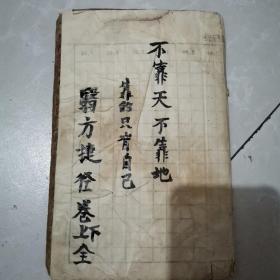 不靠天不靠地
靠的只有自己
医方捷径卷上下全